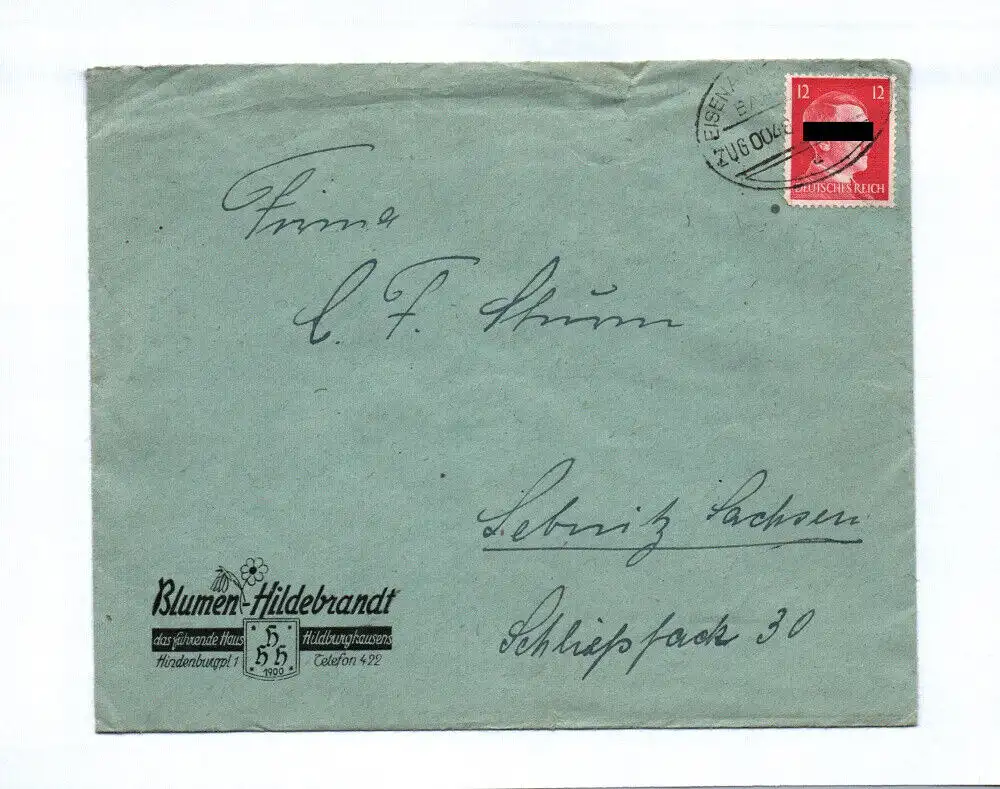 EISENA
ZUG 0048
12 12
DEUTSCHES REICH
Firma
C. F. Sturm
Sebnitz Sachsen
Schließfach 30
Blumen-Hildebrandt
das führende Haus Hildburghausens
H
H H
1900
Hindenburgpl 1 Telefon 422